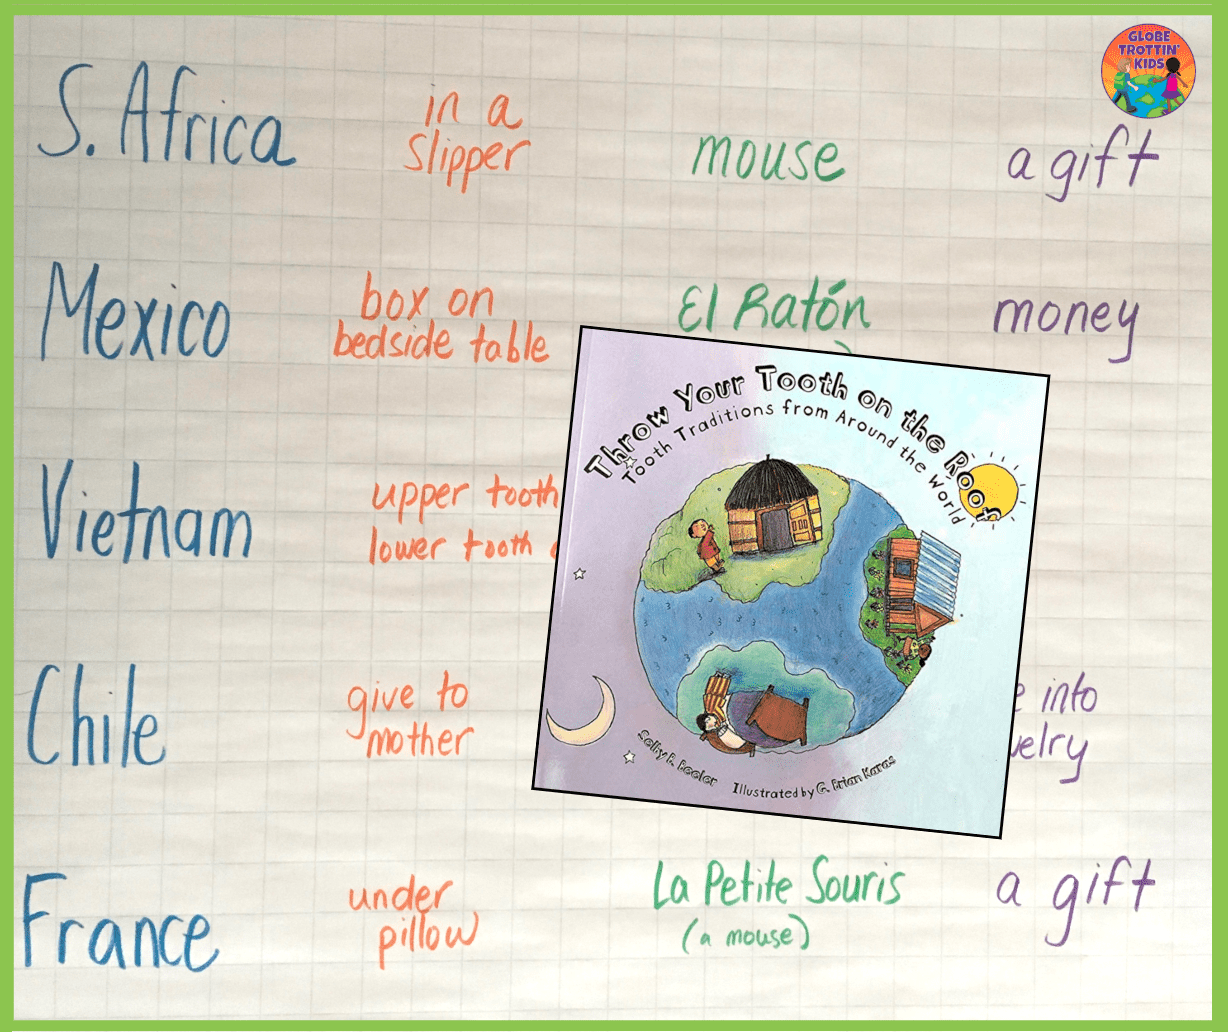 GLOBE
TROTTIN'
KIDS
S. Africa
in a
slipper
mouse
a gift
Mexico
box on
bedside table
El Ratón
money
Vietnam
upper tooth
lower tooth
Throw Your Tooth on the Roof
Tooth Traditions from Around the World
Selby B. Beeler
Illustrated by G. Brian Karas
Chile
give to
mother
into
France
under
pillow
La Petite Souris
(a mouse)
a gift